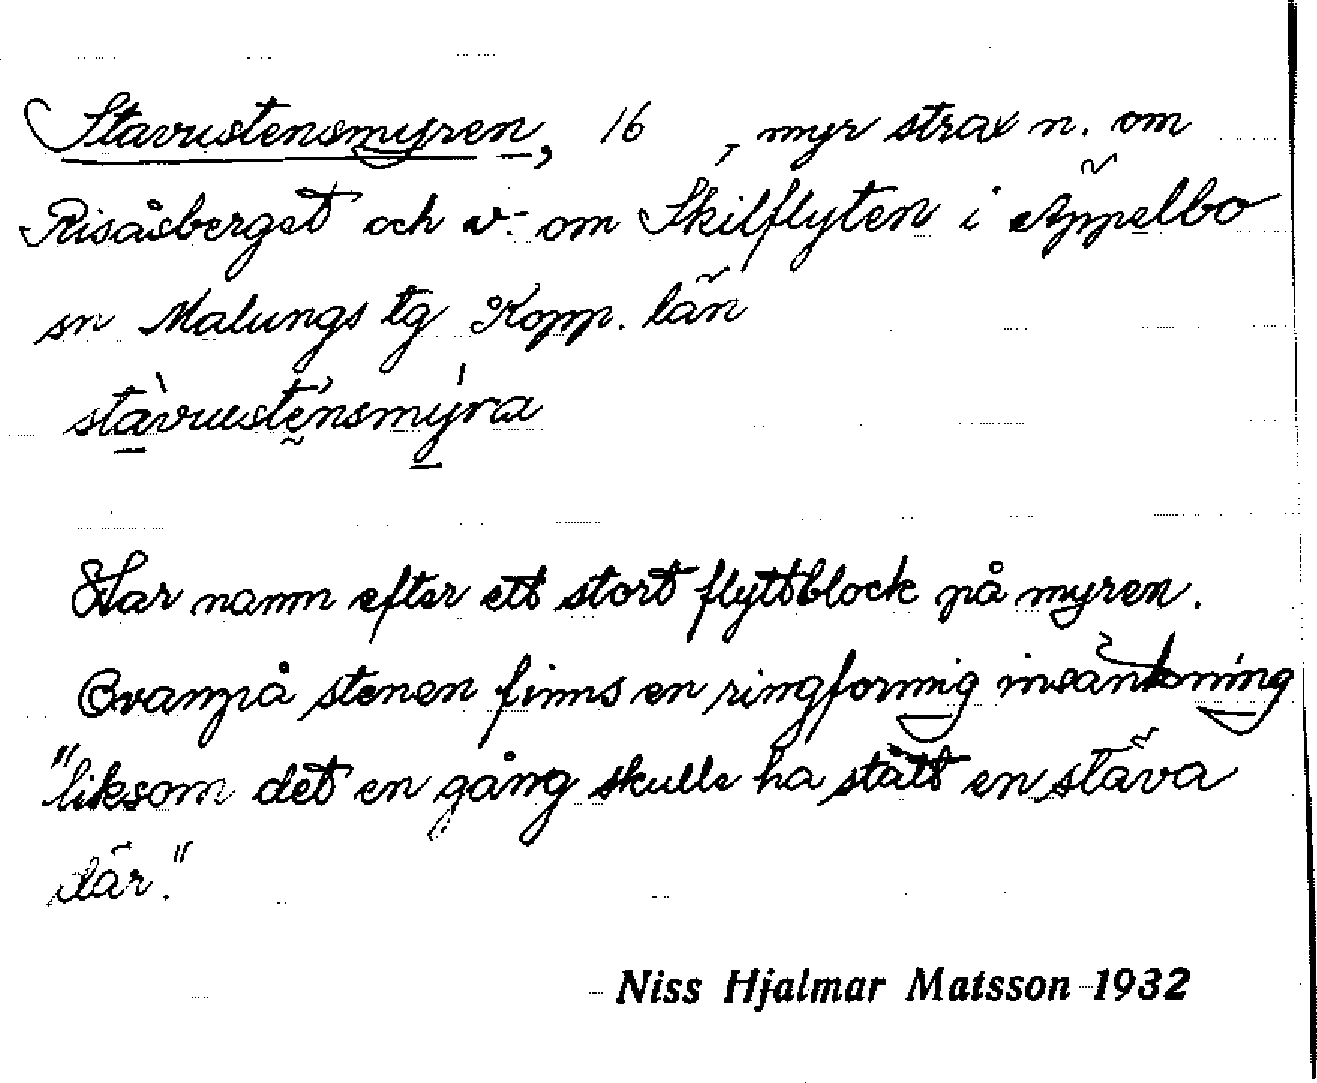 Stavustensmyren, 16 , myr strax n. om
Risåsberget och v. om Skilflyten i Äppelbo
sn Malungs tg Kopp. län
stàvustẹ́nsmýra
Har namn efter ett stort flyttblock på myren.
Ovanpå stenen finns en ringformig insänkning
"liksom det en gång skulle ha stått en stäva
där."
Niss Hjalmar Matsson 1932